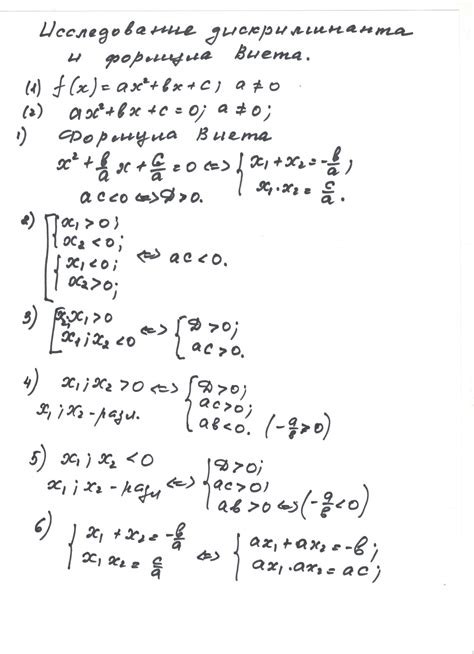 Исследование дискриминанта
и формула Виета.
(1) f(x) = ax²+bx+c; a ≠ 0
(2) ax²+bx+c = 0; a ≠ 0;
1) Формула Виета
x² + b/a x + c/a = 0 ⇔ { x₁ + x₂ = -b/a; x₁ · x₂ = c/a.
ac<0 ⇔ D>0.
2) [ { x₁ > 0; x₂ < 0; { x₁ < 0; x₂ > 0; ⇔ ac < 0.
3) [ x₂; x₁ > 0 x₁; x₂ < 0 ⇔ { D > 0; ac > 0.
4) x₁; x₂ > 0 ⇔ { D > 0; ac > 0; ab < 0. (-a/b > 0)
x₁; x₂ - разл.
5) x₁; x₂ < 0
x₁; x₂ - разл ⇔ { D > 0; ac > 0; ab > 0 ⇔ (-a/b < 0)
6) { x₁ + x₂ = -b/a x₁ x₂ = c/a ⇔ { ax₁ + ax₂ = -b; ax₁ · ax₂ = ac;